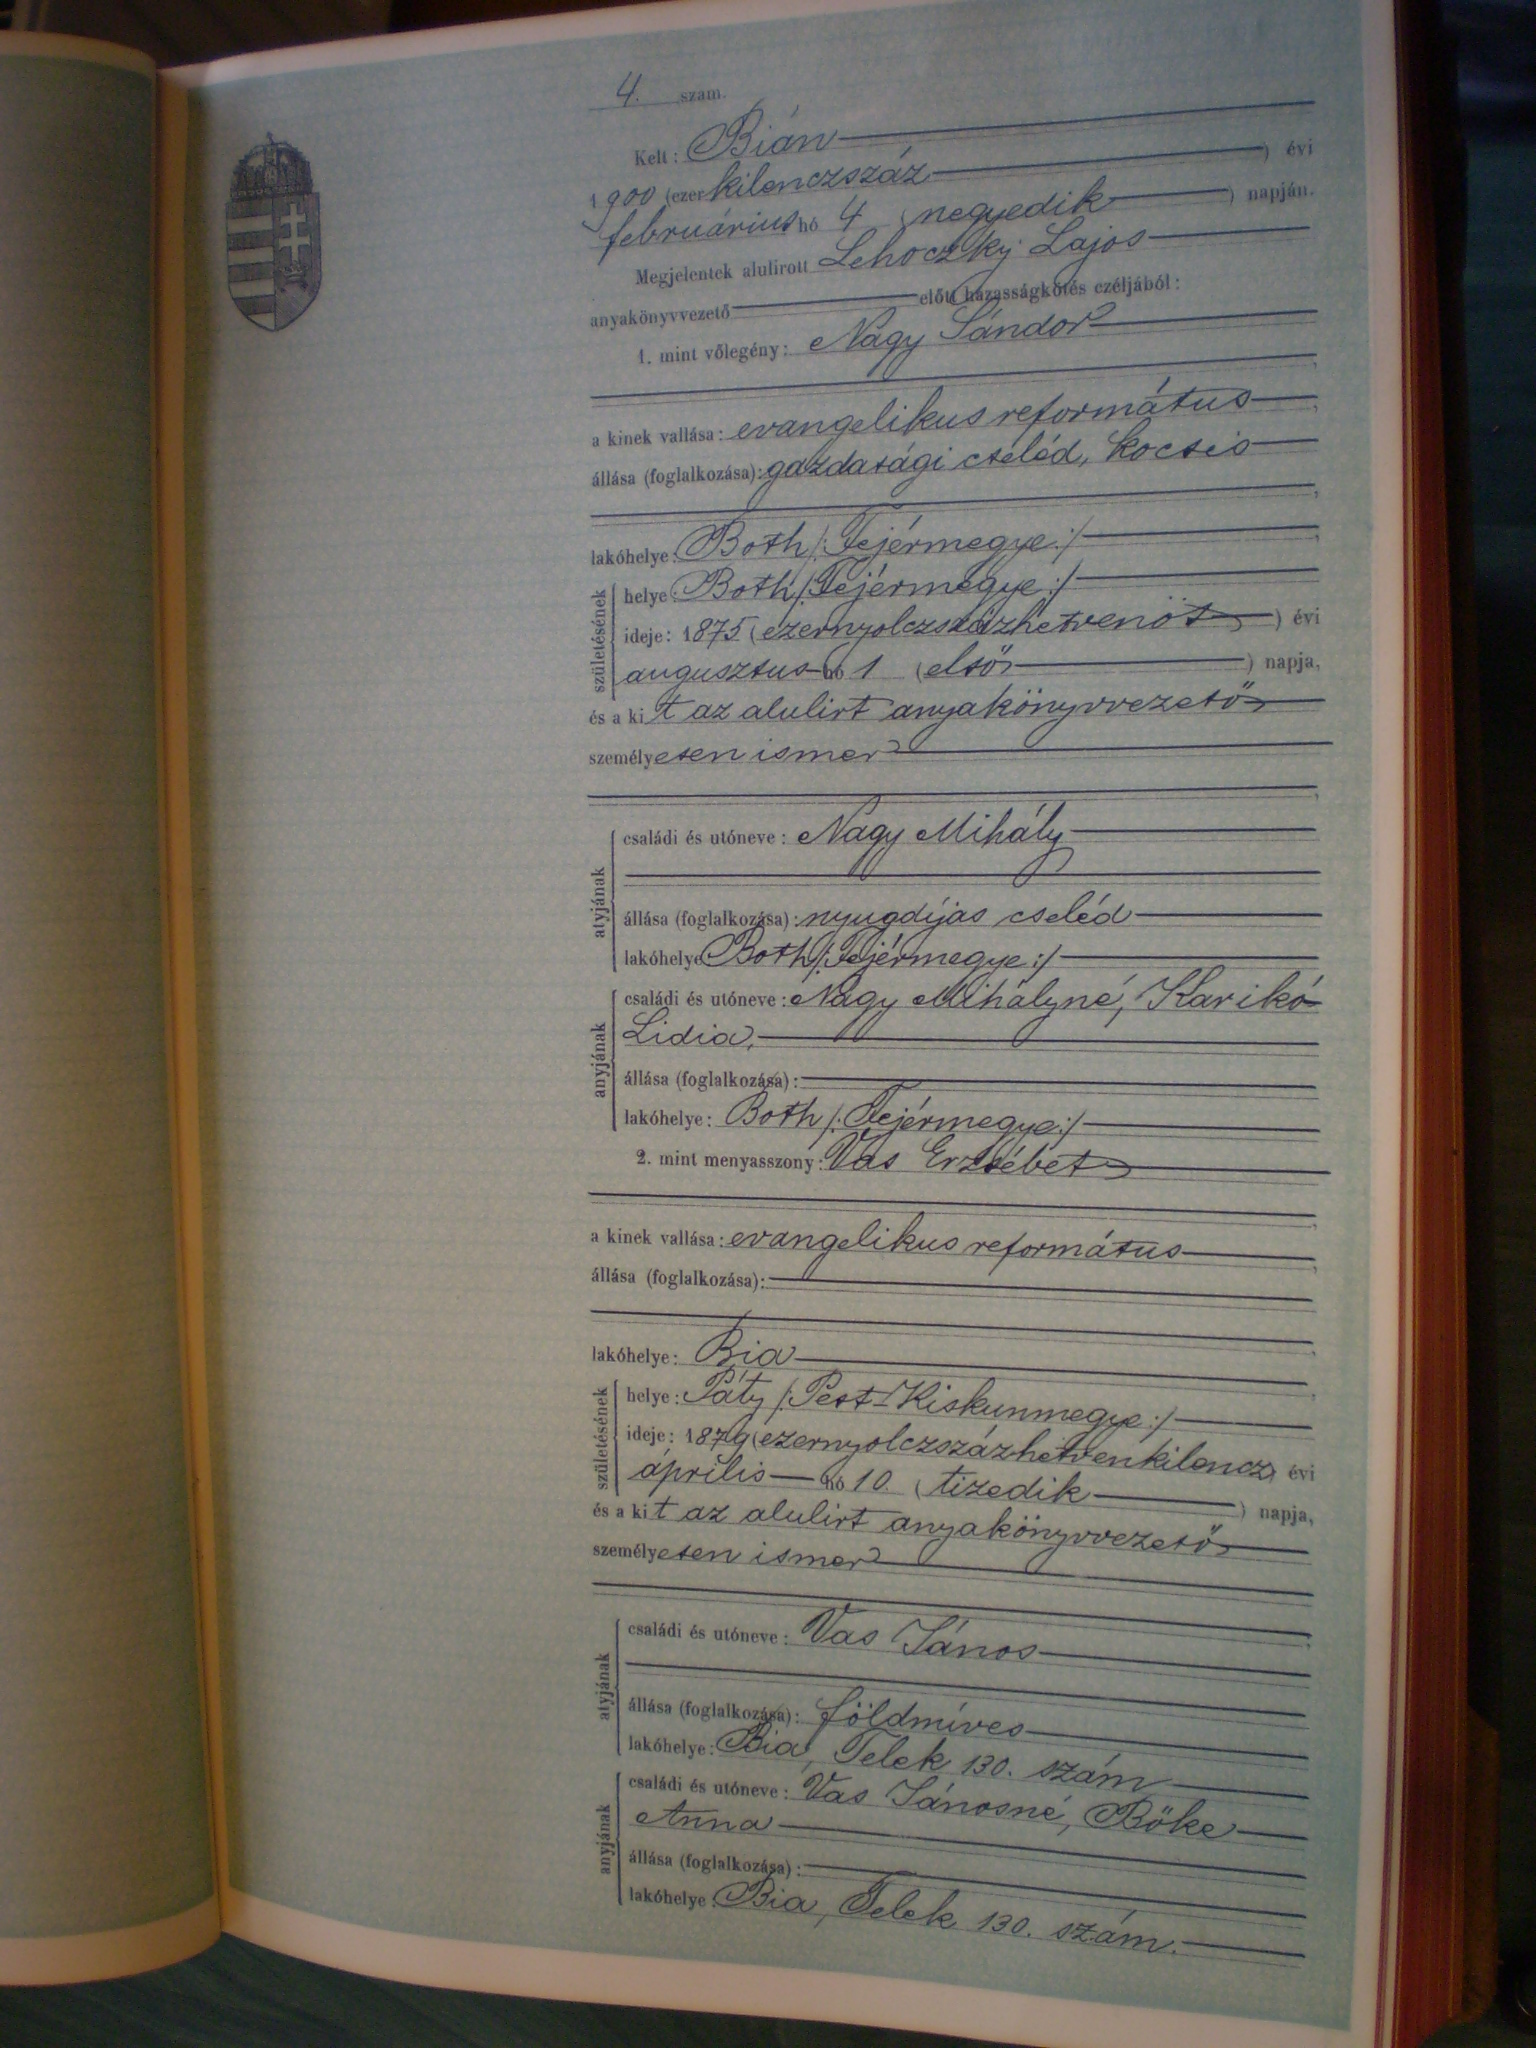 4. szám.
Kelt: Bián
1900 (ezerkilenczszáz) évi
februárius hó 4 (negyedik) napján.
Megjelentek alulirott Lehoczky Lajos
anyakönyvvezető előtt házasságkötés czéljából:
1. mint vőlegény: Nagy Sándor
a kinek vallása: evangelikus református
állása (foglalkozása): gazdasági cseléd, kocsis
lakóhelye: Both /: Fejérmegye :/
születésének
helye: Both /: Fejérmegye :/
ideje: 1875 (ezernyolczszázhetvenöt) évi
augusztus hó 1 (első) napja,
és a kit az alulirt anyakönyvvezető
személyesen ismer
atyjának
családi és utóneve: Nagy Mihály
állása (foglalkozása): nyugdíjas cseléd
lakóhelye Both /: Fejérmegye :/
anyjának
családi és utóneve: Nagy Mihályné, Karikó
Lidia,
állása (foglalkozása):
lakóhelye: Both /: Fejérmegye :/
2. mint menyasszony: Vas Erzsébet
a kinek vallása: evangelikus református
állása (foglalkozása):
lakóhelye: Bia
születésének
helye: Páty /: Pest-Kiskunmegye :/
ideje: 1879 (ezernyolczszázhetvenkilencz) évi
április hó 10. (tizedik) napja,
és a kit az alulirt anyakönyvvezető
személyesen ismer
atyjának
családi és utóneve: Vas János
állása (foglalkozása): földmíves
lakóhelye: Bia, Telek 130. szám
anyjának
családi és utóneve: Vas Jánosné, Bőke
Anna
állása (foglalkozása):
lakóhelye: Bia, Telek 130. szám.